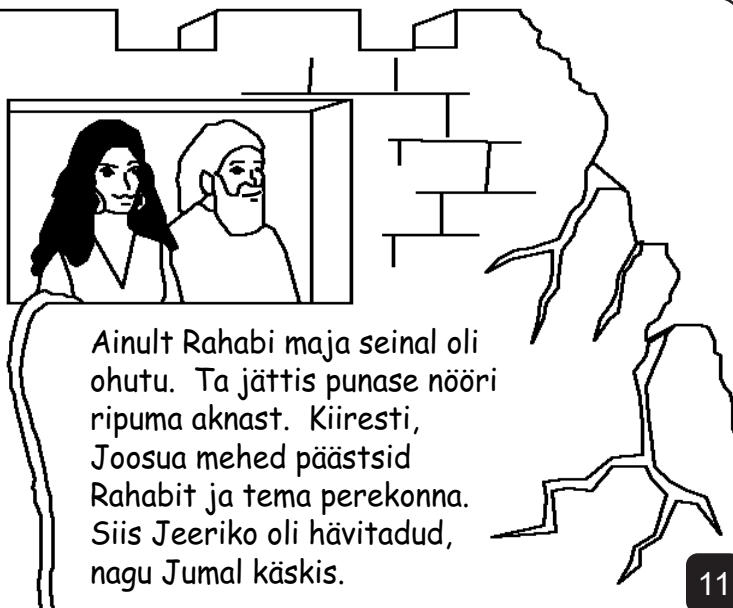 Ainult Rahabi maja seinal oli
ohutu.  Ta jättis punase nööri
ripuma aknast.  Kiiresti,
Joosua mehed päästsid
Rahabit ja tema perekonna.
Siis Jeeriko oli hävitadud,
nagu Jumal käskis.
11